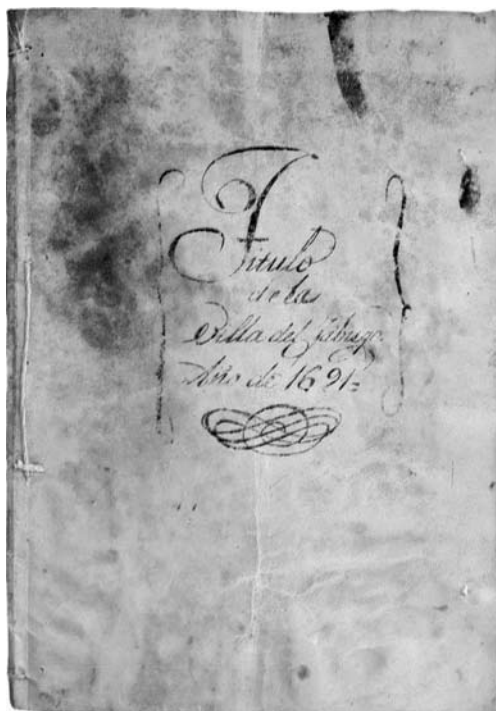 Titulo
de la
Villa del Jabugo.
Año de 1691=